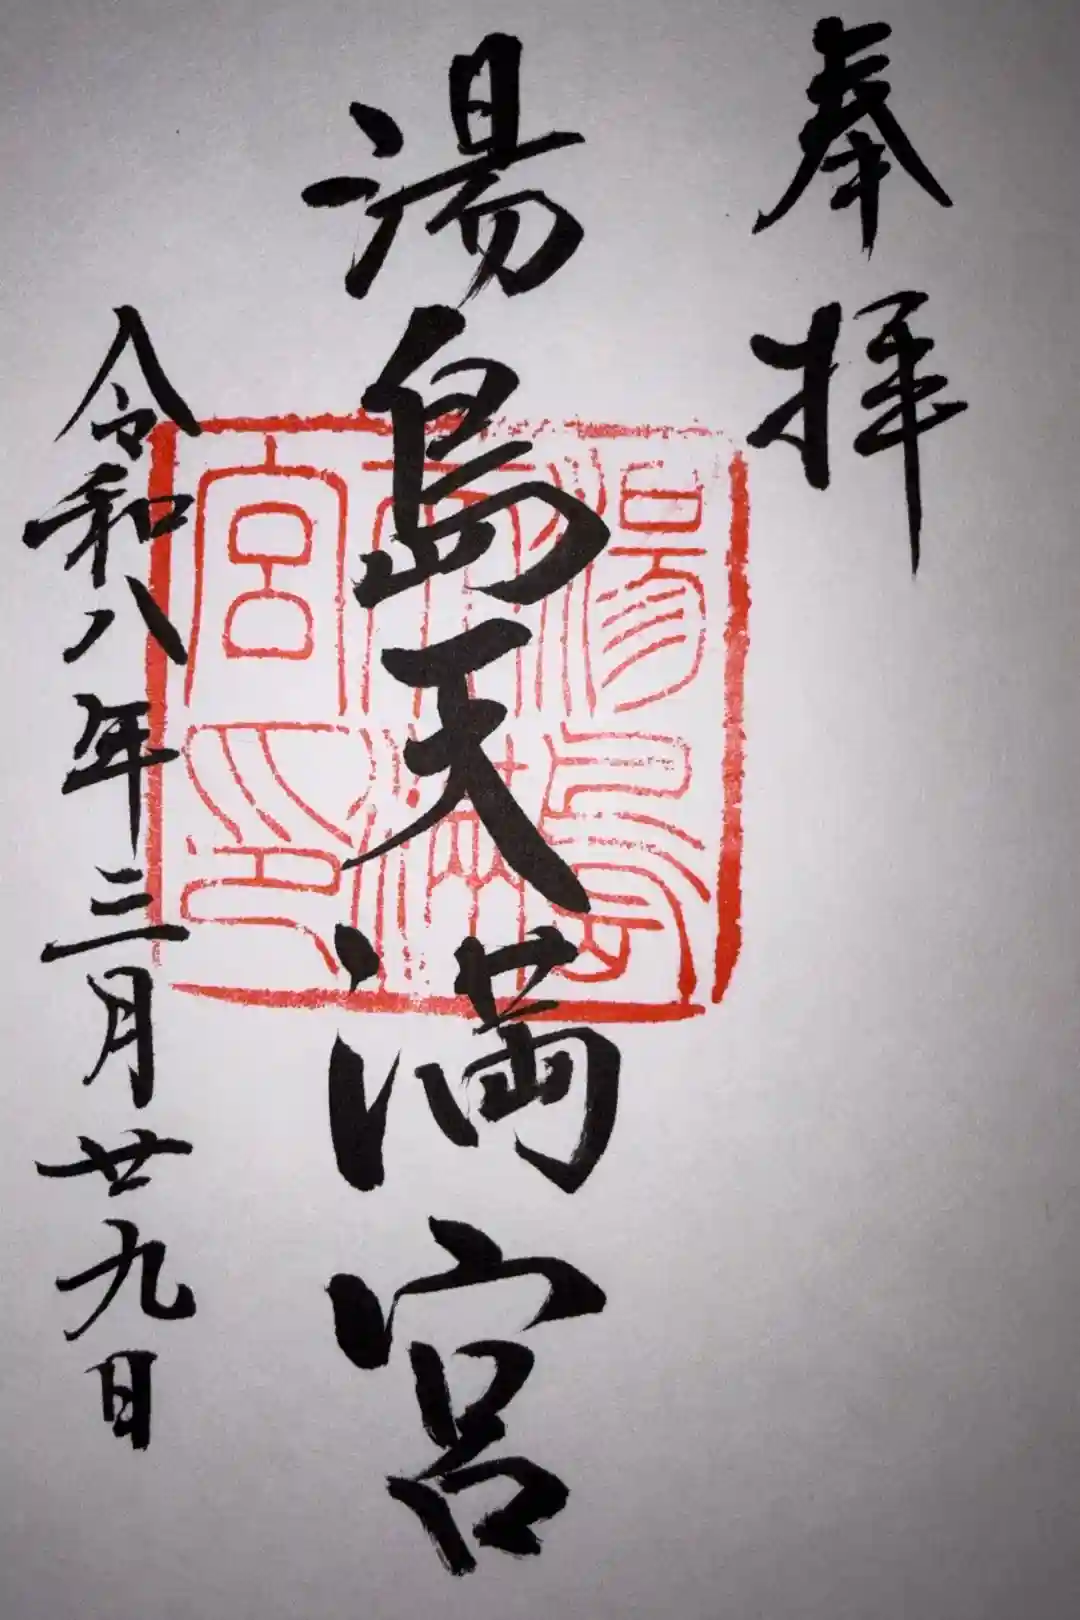 奉拝
湯島天満宮
令和八年三月廿九日
湯島天満宮印